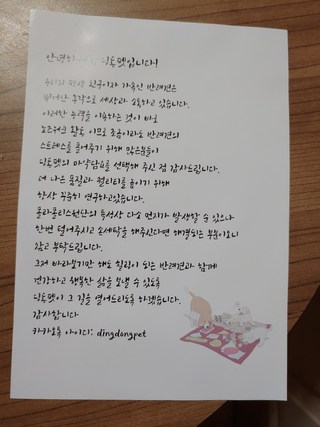 안녕하세요, 딩동펫입니다!
우리의 평생 친구이자 가족인 반려견은
뛰어난 후각으로 세상과 소통하고 있습니다.
이러한 능력을 이용하는 것이 바로
노즈워크 활동 이므로 조금이라도 반려견의
스트레스를 풀어주기 위해 많은분들이
딩동펫의 마약담요를 선택해 주신 점 감사드립니다.
더 나은 품질과 퀄리티를 높이기 위해
항상 꾸준히 연구하고있습니다.
폴라폴리스원단의 특성상 다소 먼지가 발생할 수 있으나
한번 털어주시고 손세탁을 해주신다면 해결되는 부분이오니
참고 부탁드립니다.
그저 바라보기만 해도 힐링이 되는 반려견과 함께
건강하고 행복한 삶을 보낼 수 있도록
딩동펫이 그 길을 열어드리도록 하겠습니다.
감사합니다
카카오톡 아이디: dingdongpet